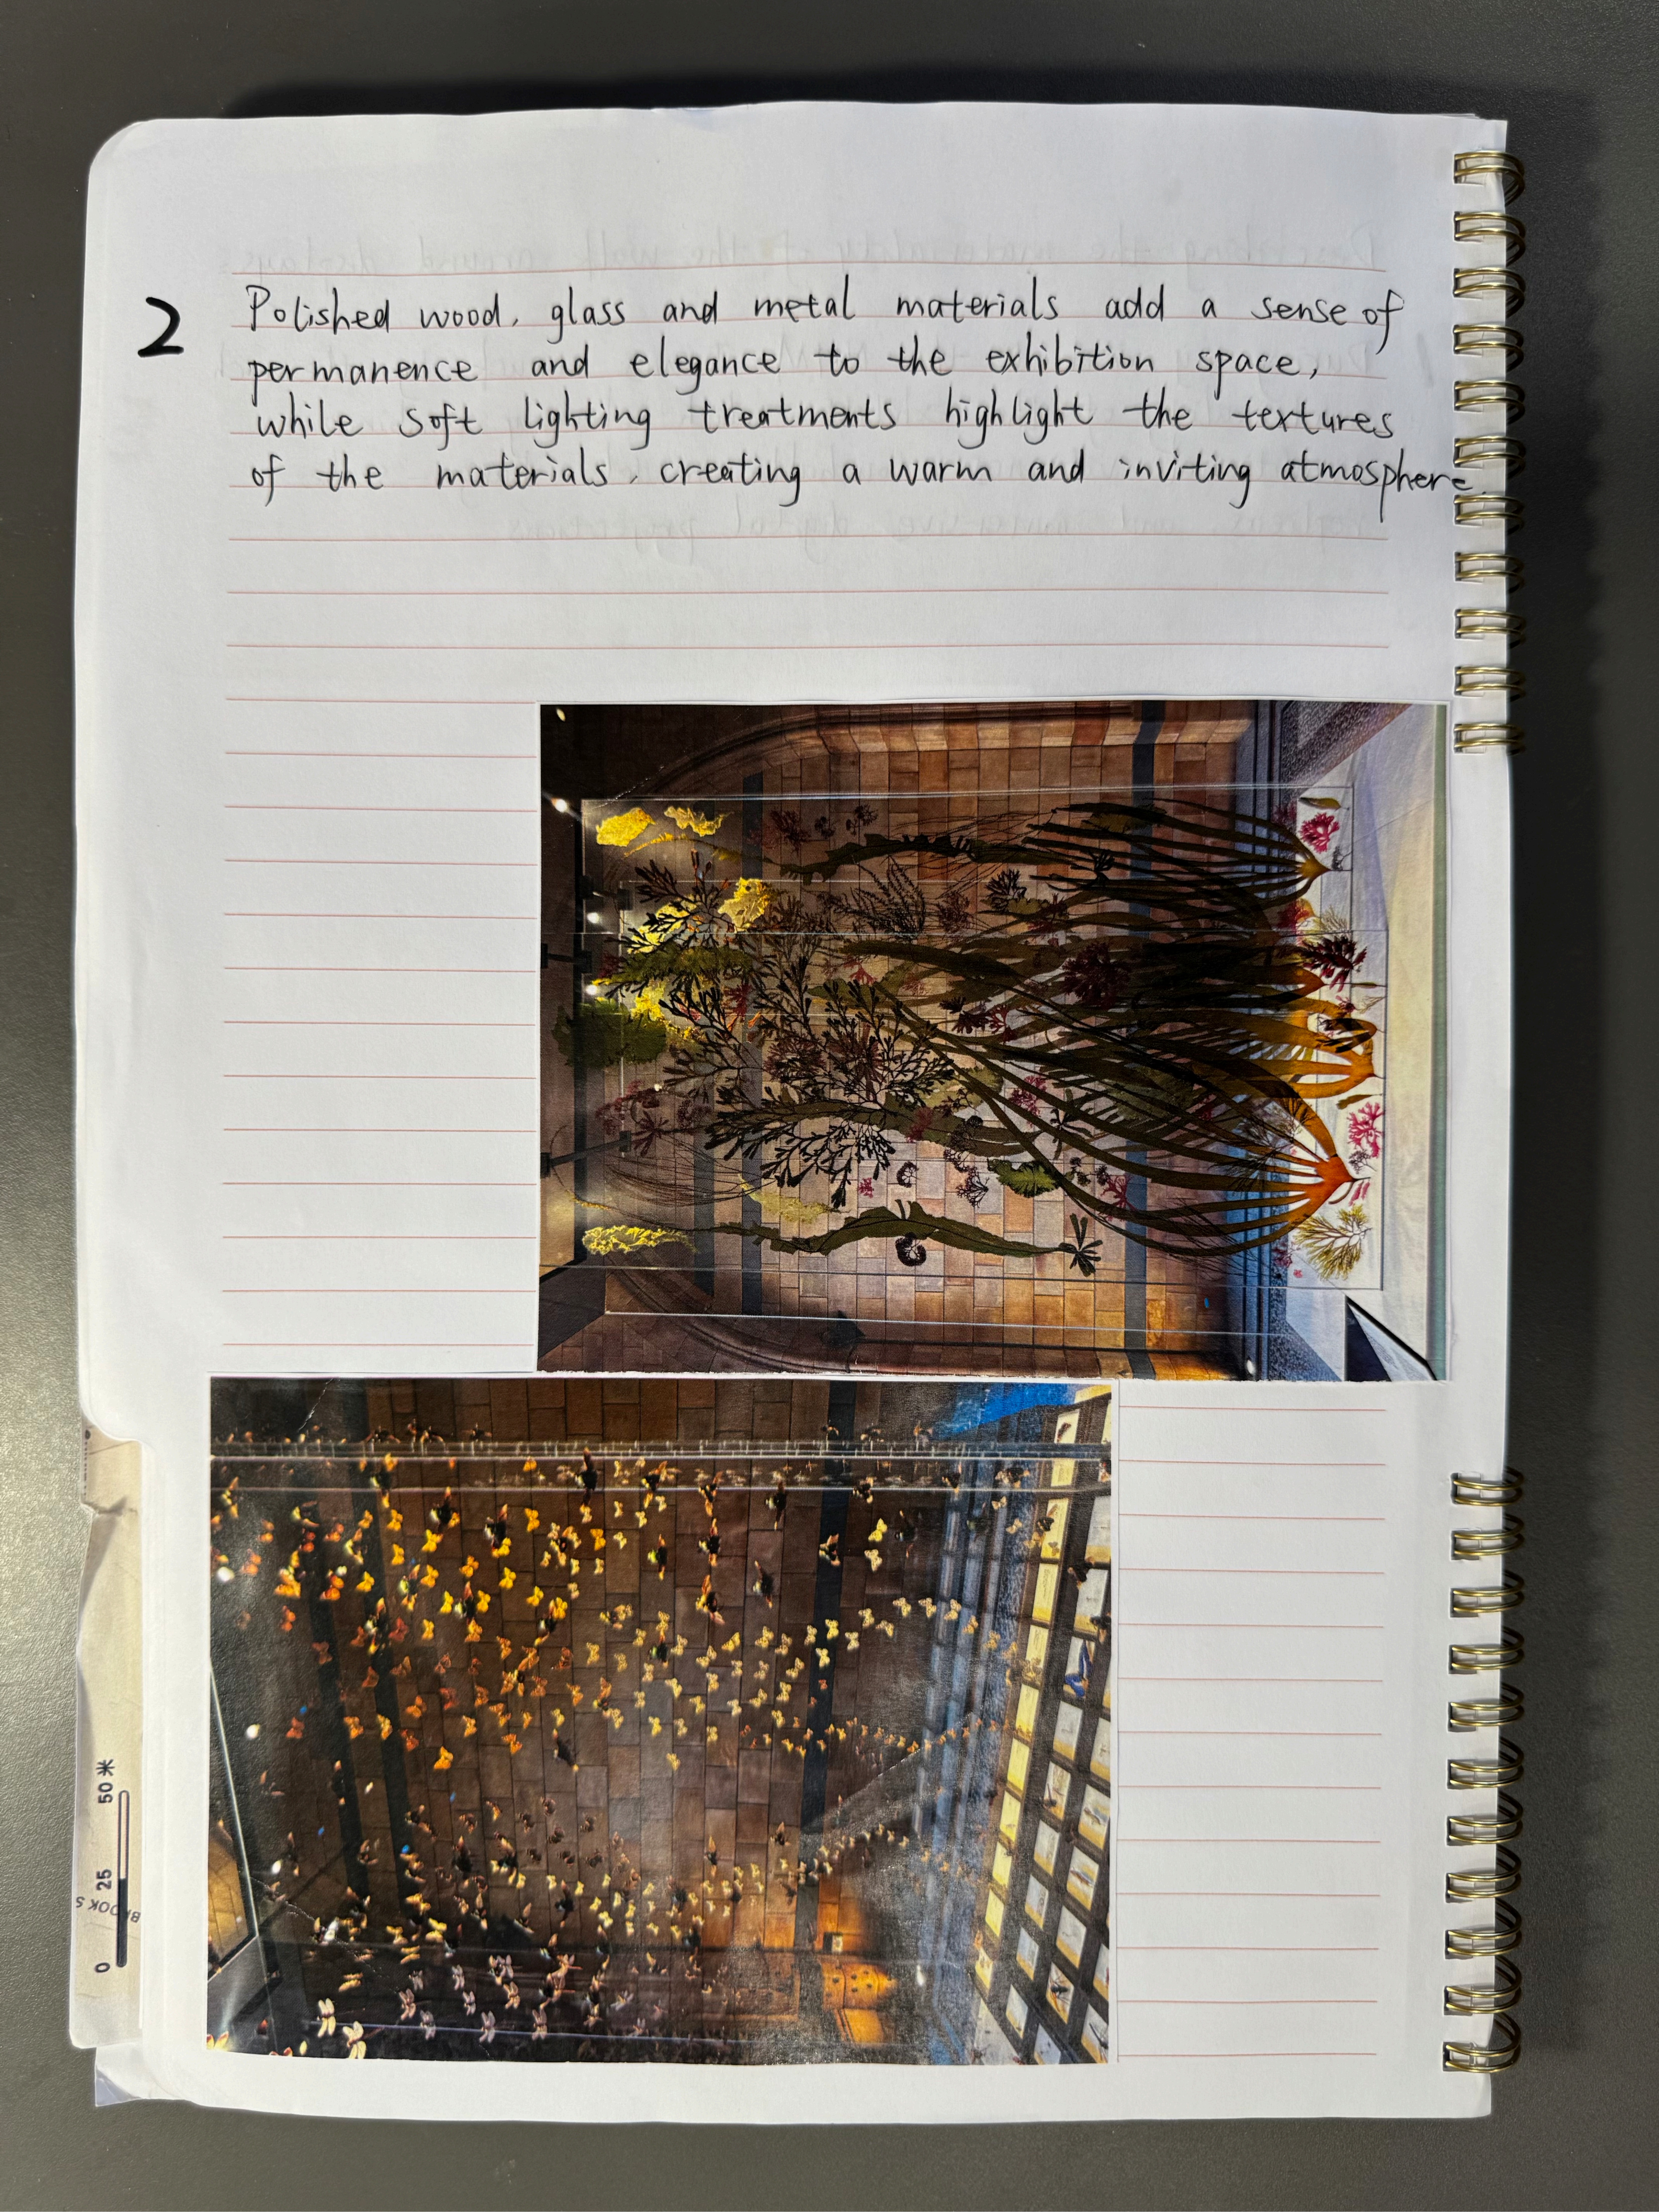 2
Polished wood, glass and metal materials add a sense of
permanence and elegance to the exhibition space,
while soft lighting treatments highlight the textures
of the materials, creating a warm and inviting atmosphere.
0 25 50米